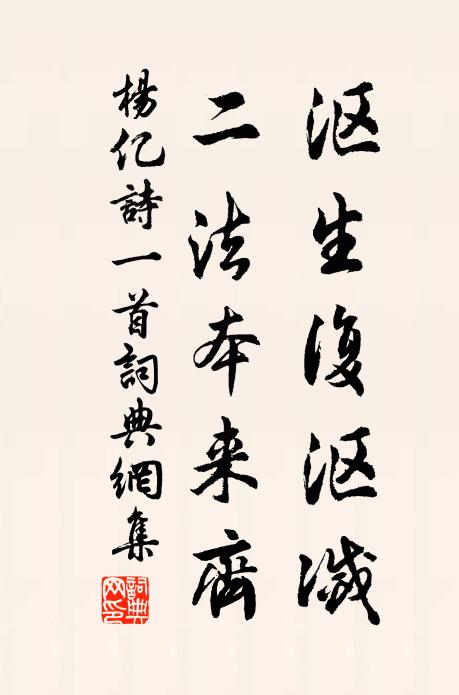 沤生復沤滅
二法本来齊
楊亿詩一首詞典網集
詞典网印